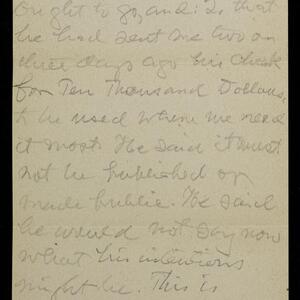 ought to go, and: 2. that
he had sent me two or
three days ago his check
for Ten Thousand Dollars,
to be used where we need
it most. He said it must
not be published or
made public. He said
he would not say now
what his intentions
might be. This is